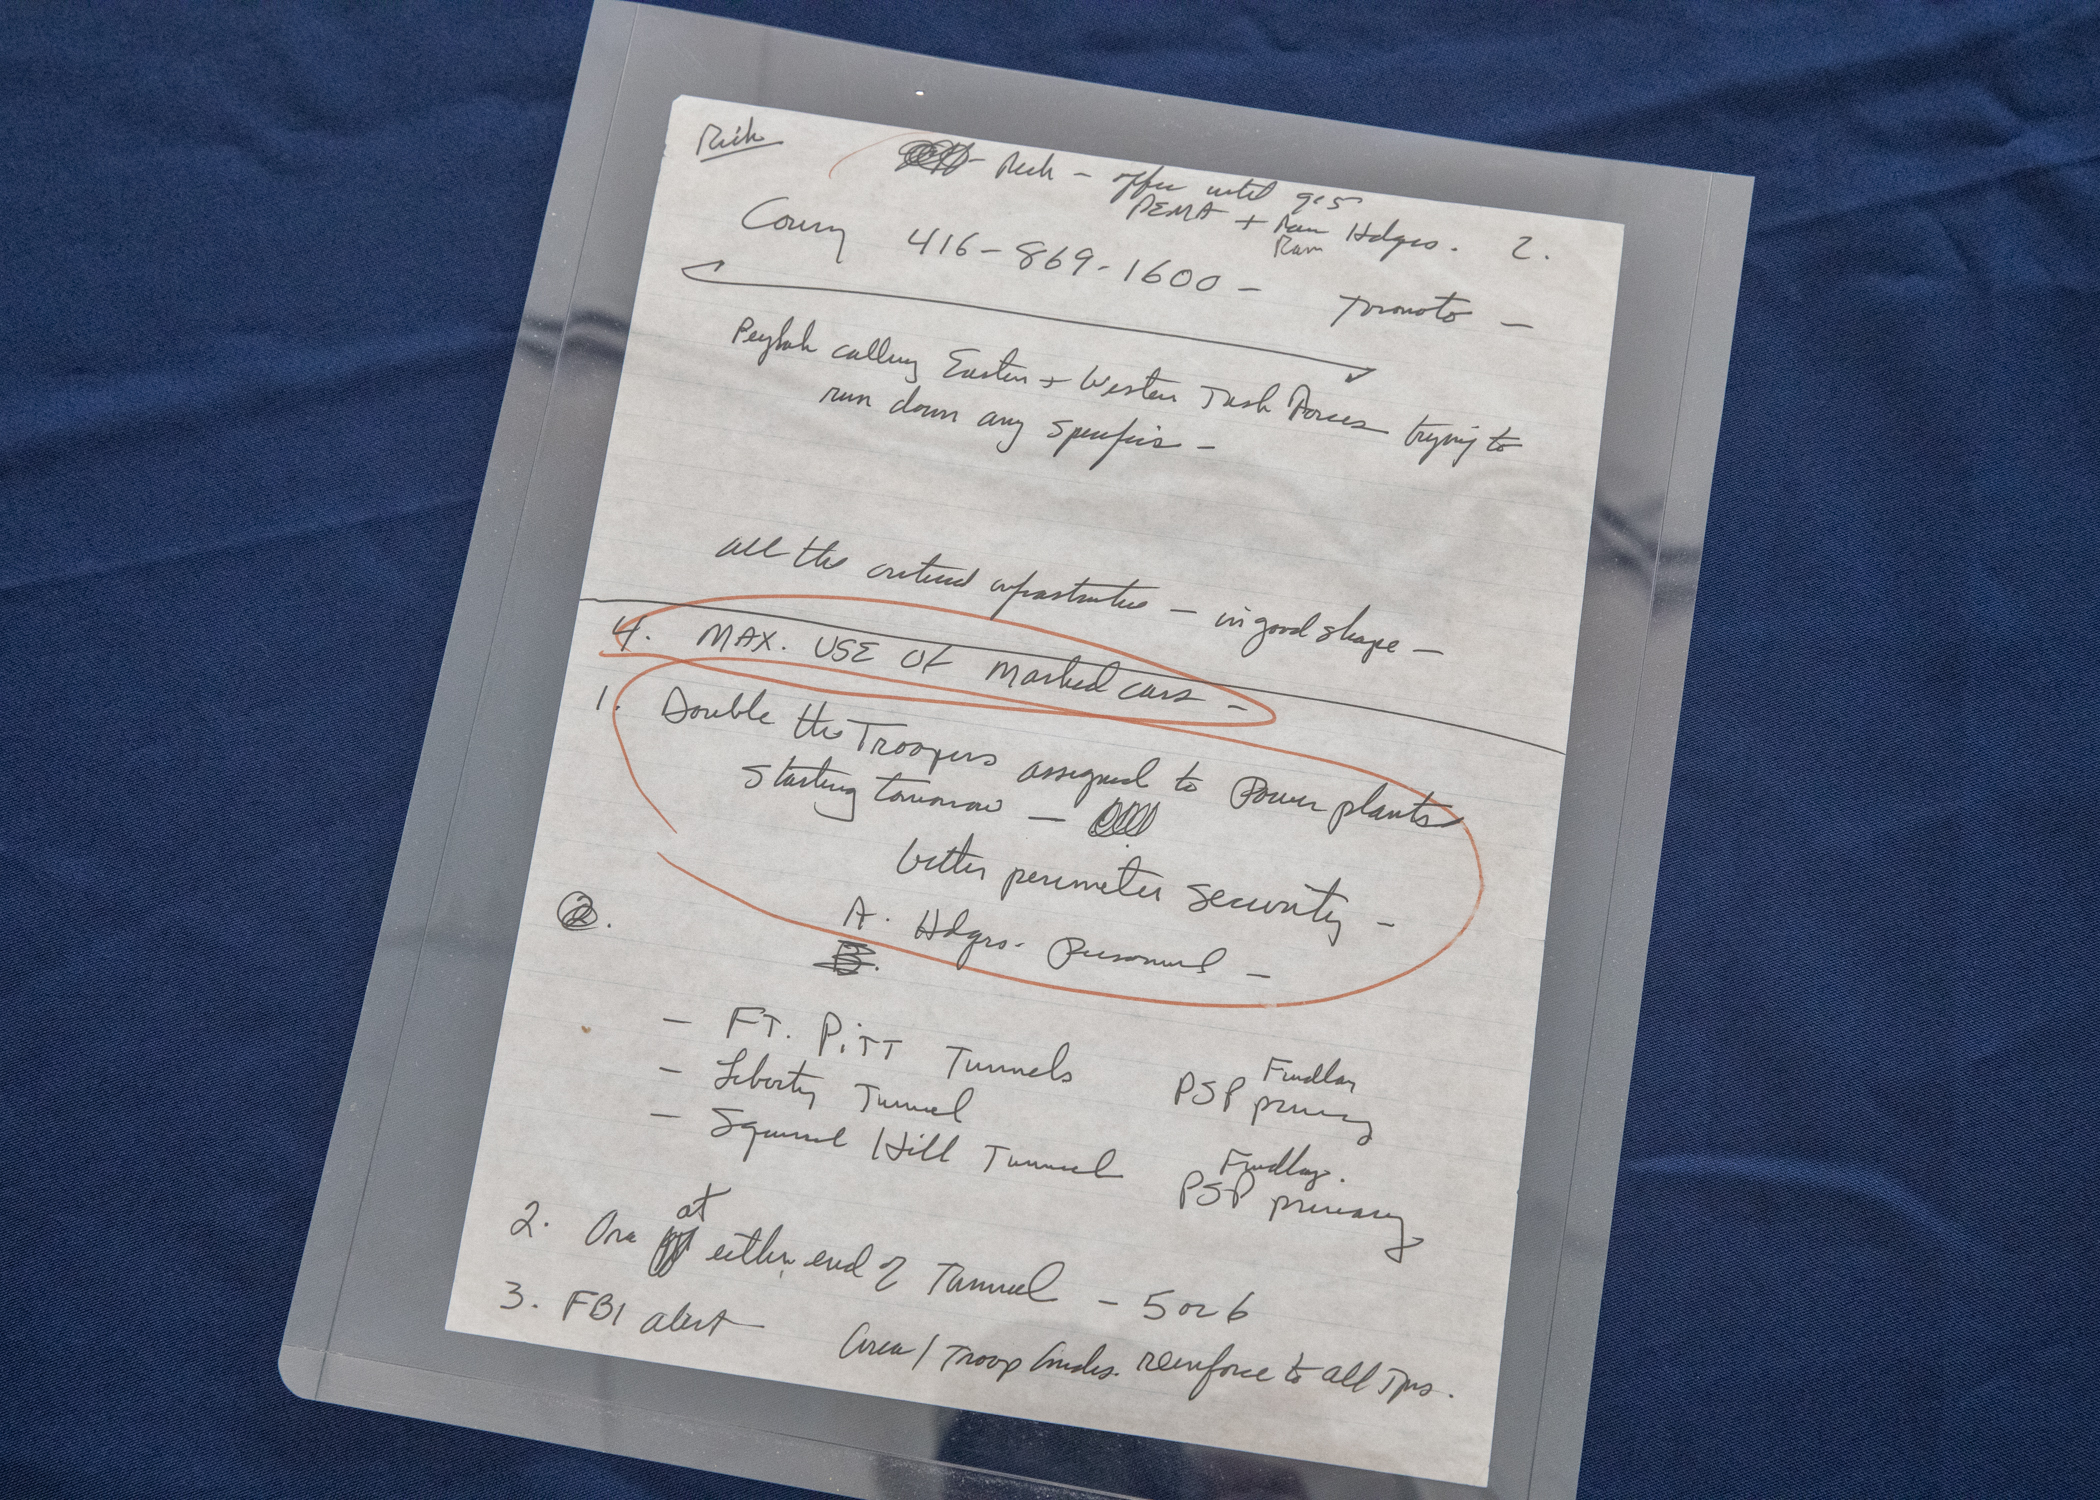 Rick
Rick - office until 9:15
PEMA + Ram Hdqrs. 2.
Ram
Coury 416-869-1600 - Toronto -
calling Eastern + Western Task Forces trying to
run down any specifics -
all the critical infrastructure - in good shape -
4. MAX. USE OF Marked cars -
1. Double the Troopers assigned to Power plants
starting tomorrow -
better perimeter security -
2.
A. Hdqrs. Personnel -
B.
- FT. PiTT Tunnels Findlay
PSP primary
- Liberty Tunnel
- Squirrel Hill Tunnel Findlay.
PSP primary
at
2. One either end of Tunnel - 5 or 6
3. FBI alert Area / Troop Cmdrs. reinforce to all Tprs.